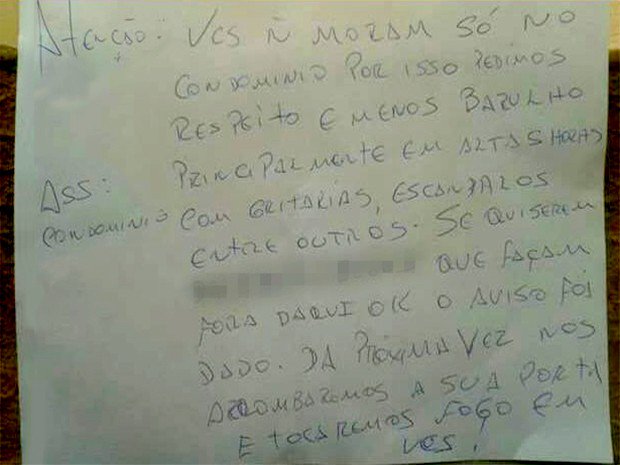 Atenção: VCS Ñ MORAM SÓ NO
CONDOMINIO POR ISSO PEDIMOS
RESPEITO E MENOS BARULHO
PRINCIPALMENTE EM ALTAS HORAS
COM GRITARIAS, ESCANDALOS
ENTRE OUTROS. SE QUISEREM
QUE FAÇAM
FORA DAQUI OK O AVISO FOI
DADO. DA PRÓXIMA VEZ NOS
ARROMBAREMOS A SUA PORTA
E TOCAREMOS FOGO EM
VCS.
ASS:
CONDOMINIO